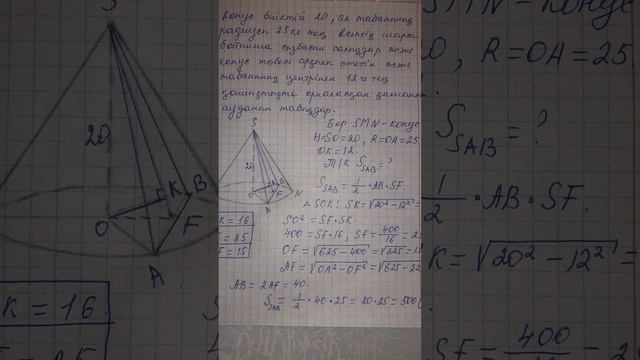 Конус биіктігі 20, ал табанының
радиусы 25 ке тең. Есептің шарты
бойынша сызбасын салыңдар және
конус төбесі арқылы өтетін және
табанының центрінен 12 ге тең
қашықтықта орналасқан қиманың
ауданын табыңдар.
Бер SMN - конус
H=SO=20, R=OA=25
OK=12.
Т/К S_SAB = ?
S_SAB = 1/2 · AB · SF.
Δ SOK: SK = √20²-12² =
SO² = SF·SK.
400 = SF·16, SF = 400/16 = 2
OF = √625-400 = √225 = 15
AF = √OA²-OF² = √625-22
AB = 2AF = 40
S_SAB = 1/2 · 40 · 25 = 20·25 = 500(
S
20
O
K
B
F
N
A
K = 16
F = 25
F = 15
S
20
O
K
B
F
A
K = 16
SMN - конус
0, R=OA=25
S_SAB = ?
1/2 · AB · SF.
K = √20²-12²
SF = 400